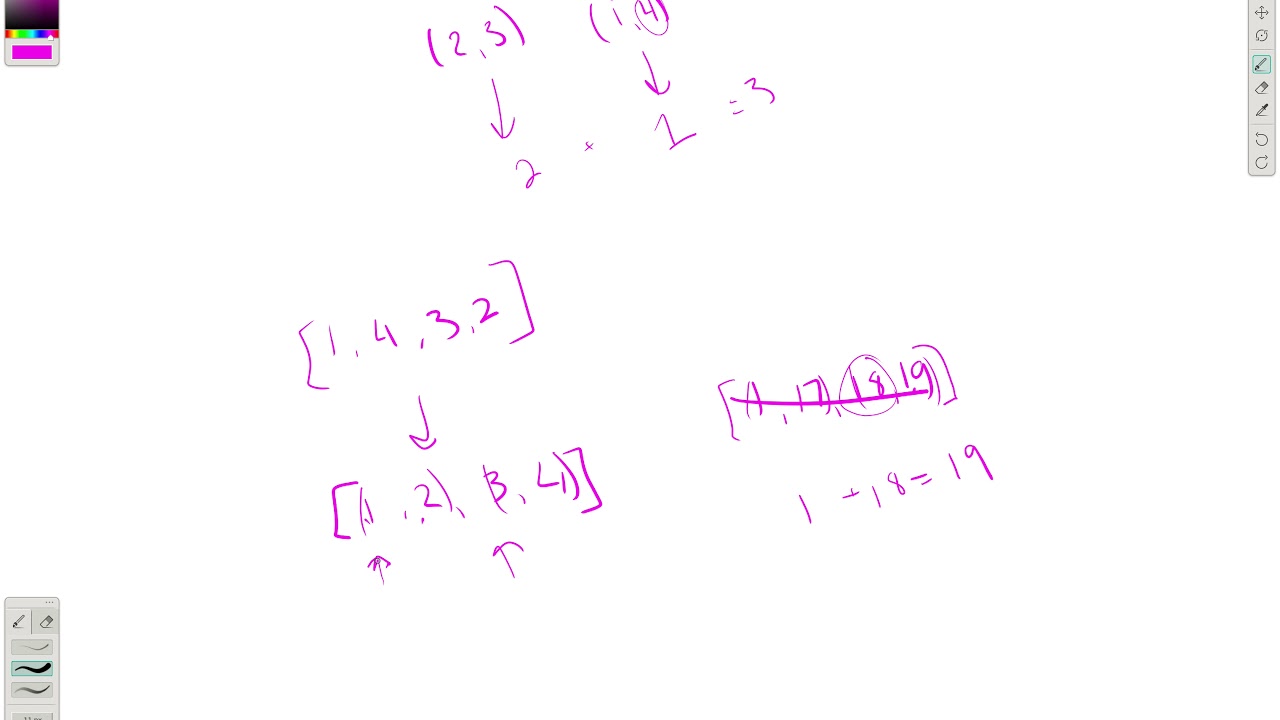 (2,3) (1,4)
2 + 1 = 3
[1, 4, 3, 2]
[(1, 17), (18, 19)]
[(1, 2), (3, 4)]
1 + 18 = 19